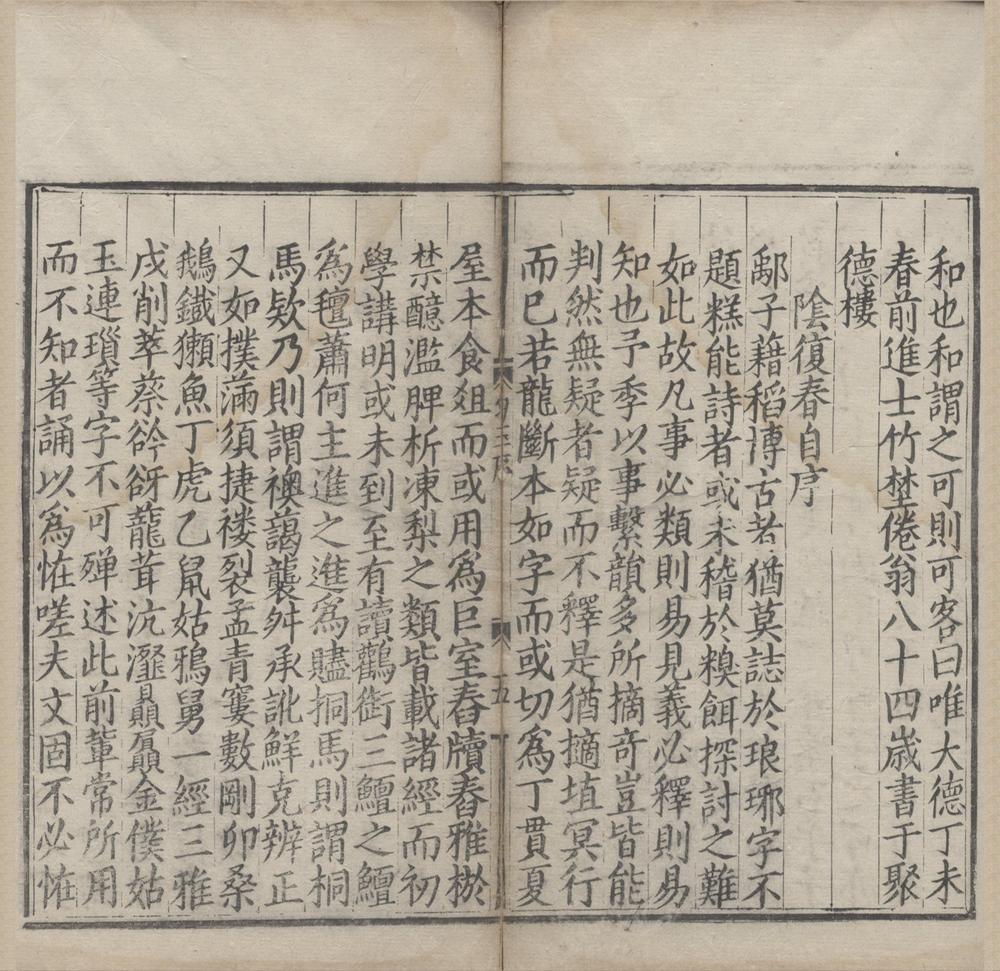 和也和謂之可則可客曰唯大德丁未
春前進士竹埜倦翁八十四歲書于聚
德樓
陰復春自序
鄅子籍稻溥古者猶莫誌於琅琊字不
題糕能詩者或未稽於糗餌探討之難
如此故凡事必類則易見義必釋則易
知也予季以事繫韻多所摘奇豈皆能
判然無疑者疑而不釋是猶擿埴冥行
而巳若龍斷本如字而或切爲丁貫夏
五
屋本食俎而或用爲巨室舂牘舂雅棜
禁醷濫脾析凍梨之類皆載諸經而初
學講明或未到至有讀鸛銜三鱣之鱣
爲氊蕭何主進之進爲贐挏馬則謂桐
馬欵乃則謂襖藹襲舛承訛鮮克辨正
又如撲滿須捷褸裂孟青窶數剛卯桑
鵝鐵獺魚丁虎乙鼠姑鴉舅一經三雅
戍削萃蔡谽谺蘢茸沆瀣贔屭金僕姑
玉連瑣等字不可殫述此前輩常所用
而不知者誦以爲恠嗟夫文固不必恠